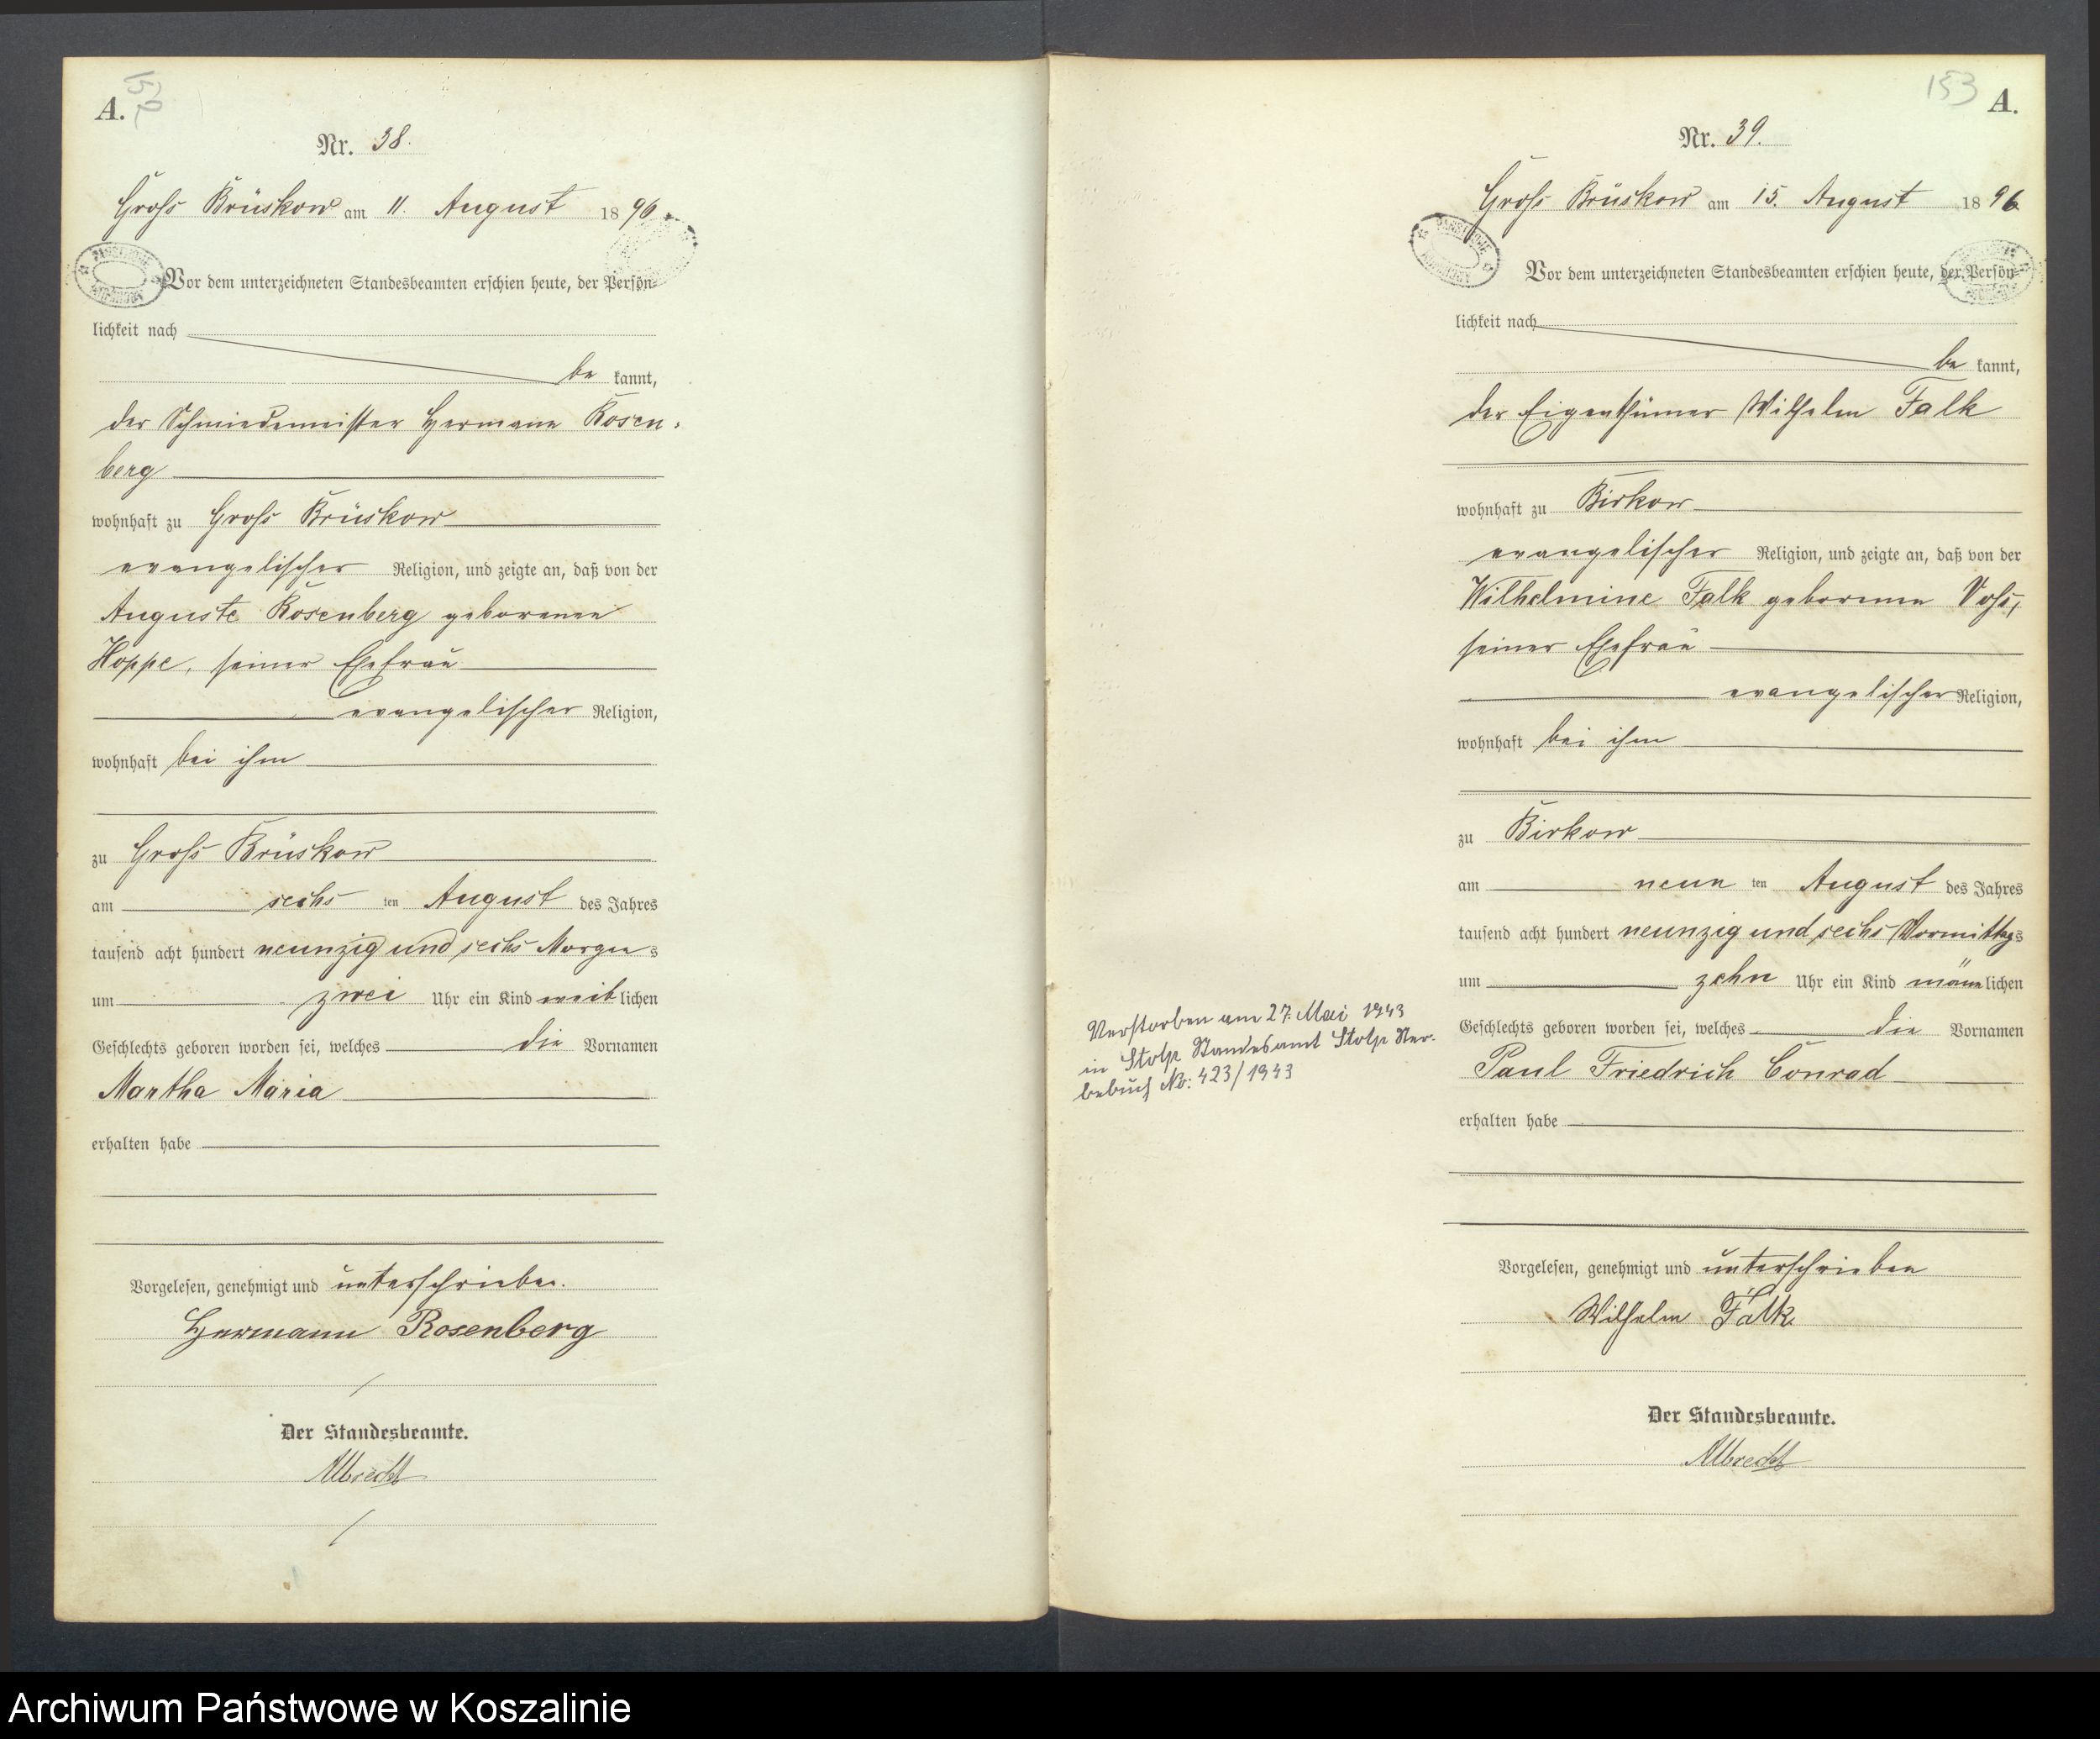 A.
Nr. 38.
Groß Brüskow am 11. August 1896.
Vor dem unterzeichneten Standesbeamten erschien heute, der Persön-
lichkeit nach
be kannt,
der Schmiedemeister Hermann Rosen-
berg
wohnhaft zu Groß Brüskow
evangelischer Religion, und zeigte an, daß von der
Auguste Rosenberg geborenen
Hoppe, seiner Ehefrau
evangelischer Religion,
wohnhaft bei ihm
zu Groß Brüskow
am sechs ten August des Jahres
tausend acht hundert neunzig und sechs Morgens
um zwei Uhr ein Kind weiblichen
Geschlechts geboren worden sei, welches die Vornamen
Martha Maria
erhalten habe
Vorgelesen, genehmigt und unterschrieben.
Hermann Rosenberg
Der Standesbeamte.
Albrecht
153
A.
Nr. 39.
Groß Brüskow am 15. August 1896
Vor dem unterzeichneten Standesbeamten erschien heute, der Persön-
lichkeit nach
be kannt,
der Eigenthümer Wilhelm Falk
wohnhaft zu Birkow
evangelischer Religion, und zeigte an, daß von der
Wilhelmine Falk geborenen Voß,
seiner Ehefrau
evangelischer Religion,
wohnhaft bei ihm
zu Birkow
am neun ten August des Jahres
tausend acht hundert neunzig und sechs Vormittags
um zehn Uhr ein Kind männlichen
Geschlechts geboren worden sei, welches die Vornamen
Paul Friedrich Conrad
erhalten habe
Vorgelesen, genehmigt und unterschrieben
Wilhelm Falk
Der Standesbeamte.
Albrecht
Verstorben am 27. Mai 1943
in Stolp Standesamt Stolp Ster-
bebuch No: 423/1943
Archiwum Państwowe w Koszalinie